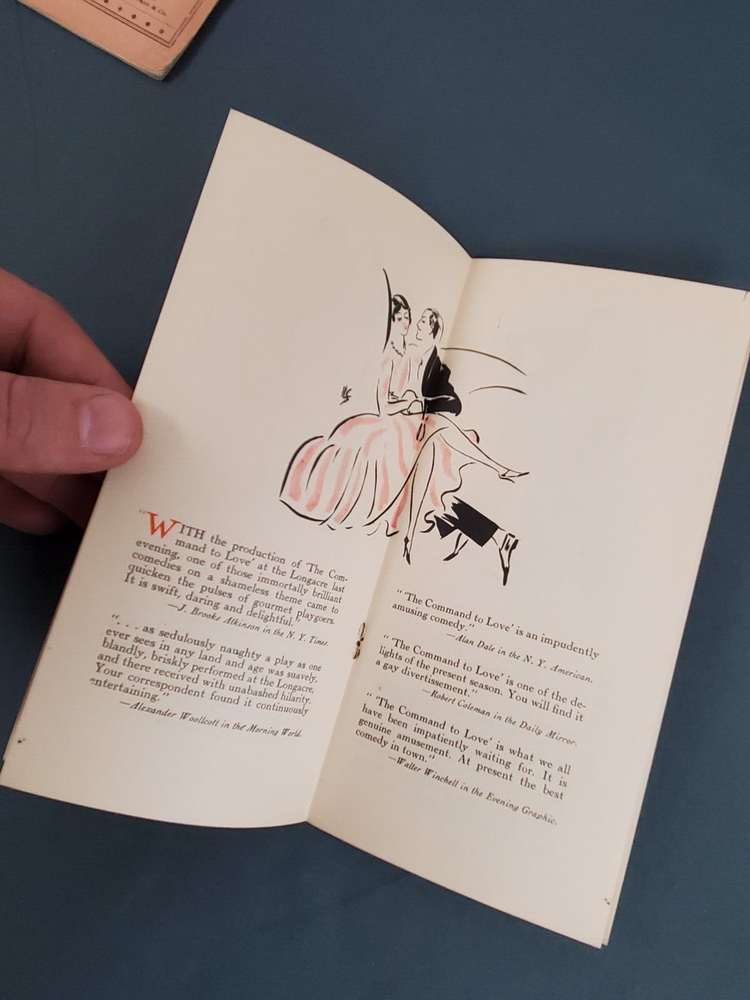 & Co.
"WITH the production of 'The Com-
mand to Love' at the Longacre last
evening, one of those immortally brilliant
comedies on a shameless theme came to
quicken the pulses of gourmet playgoers.
It is swift, daring and delightful."
—J. Brooks Atkinson in the N. Y. Times.
". . . as sedulously naughty a play as one
ever sees in any land and age was suavely,
blandly, briskly performed at the Longacre,
and there received with unabashed hilarity.
Your correspondent found it continuously
entertaining."
—Alexander Woollcott in the Morning World.
"'The Command to Love' is an impudently
amusing comedy."
—Alan Dale in the N. Y. American.
"'The Command to Love' is one of the de-
lights of the present season. You will find it
a gay divertissement."
—Robert Coleman in the Daily Mirror.
"'The Command to Love' is what we all
have been impatiently waiting for. It is
genuine amusement. At present the best
comedy in town."
—Walter Winchell in the Evening Graphic.